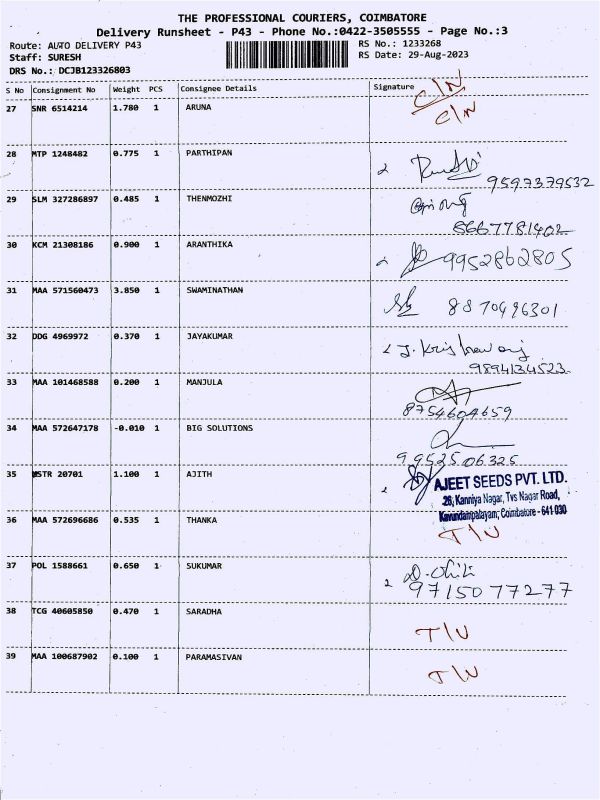 THE PROFESSIONAL COURIERS, COIMBATORE
Delivery Runsheet - P43 - Phone No.:0422-3505555 - Page No.:3
Route: AUTO DELIVERY P43 RS No.: 1233268
Staff: SURESH RS Date: 29-Aug-2023
DRS No.: DCJB123326803
S No Consignment No Weight PCS Consignee Details Signature
C/N
27 SNR 6514214 1.780 1 ARUNA C/N
28 MTP 1248482 0.775 1 PARTHIPAN
9597379532
29 SLM 327286897 0.485 1 THENMOZHI
8667781402
30 KCM 21308186 0.900 1 ARANTHIKA 9952862805
31 MAA 571560473 3.850 1 SWAMINATHAN 8870496301
32 DDG 4969972 0.370 1 JAYAKUMAR
9894134523
33 MAA 101468588 0.200 1 MANJULA
8754604659
34 MAA 572647178 -0.010 1 BIG SOLUTIONS
9952506325
35 MSTR 20701 1.100 1 AJITH AJEET SEEDS PVT. LTD.
26, Kanniya Nagar, Tvs Nagar Road,
Kavundampalayam, Coimbatore - 641 030
36 MAA 572696686 0.535 1 THANKA T/U
37 POL 1588661 0.650 1 SUKUMAR
9715077277
38 TCG 40605850 0.470 1 SARADHA T/U
39 MAA 100687902 0.100 1 PARAMASIVAN T/U